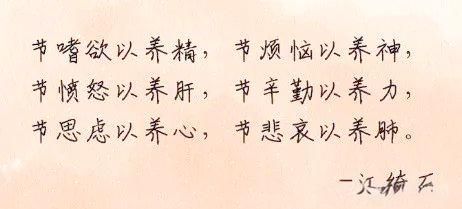 节嗜欲以养精，节烦恼以养神，
节愤怒以养肝，节辛勤以养力，
节思虑以养心，节悲哀以养肺。
—汪绮石